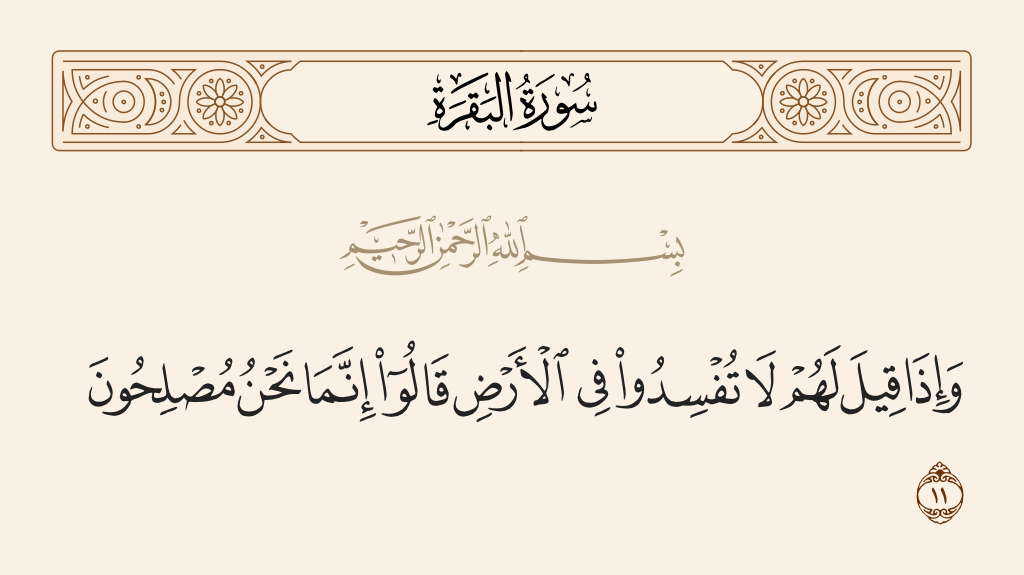 سُورَةُ البَقَرَةِ
بِسْمِ ٱللَّهِ ٱلرَّحْمَٰنِ ٱلرَّحِيمِ
وَإِذَا قِيلَ لَهُمْ لَا تُفْسِدُوا۟ فِى ٱلْأَرْضِ قَالُوٓا۟ إِنَّمَا نَحْنُ مُصْلِحُونَ
١١